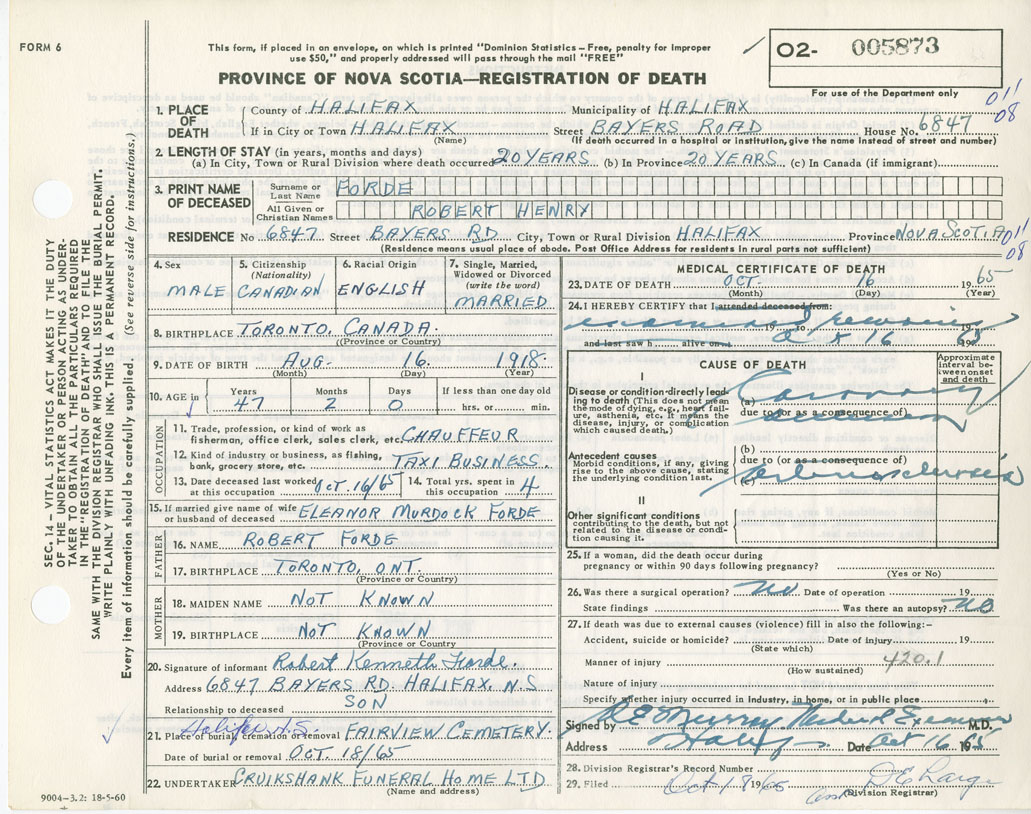 FORM 6
This form, if placed in an envelope, on which is printed "Dominion Statistics – Free, penalty for improper
use $50," and properly addressed will pass through the mail "FREE"
PROVINCE OF NOVA SCOTIA—REGISTRATION OF DEATH
02- 005873
For use of the Department only
011
08
1. PLACE OF DEATH
County of HALIFAX Municipality of HALIFAX
If in City or Town HALIFAX Street BAYERS ROAD House No. 6847
(Name) (If death occurred in a hospital or institution, give the name instead of street and number)
2. LENGTH OF STAY (in years, months and days)
(a) In City, Town or Rural Division where death occurred 20 YEARS (b) In Province 20 YEARS (c) In Canada (if immigrant)
3. PRINT NAME OF DECEASED
Surname or Last Name FORDE
All Given or Christian Names ROBERT HENRY
RESIDENCE No 6847 Street BAYERS RD City, Town or Rural Division HALIFAX Province NOVA SCOTIA
011
08
(Residence means usual place of abode. Post Office Address for residents in rural parts not sufficient)
4. Sex MALE
5. Citizenship (Nationality) CANADIAN
6. Racial Origin ENGLISH
7. Single, Married, Widowed or Divorced (write the word) MARRIED
8. BIRTHPLACE TORONTO, CANADA.
(Province or Country)
9. DATE OF BIRTH AUG. 16. 1918.
(Month) (Day) (Year)
10. AGE in Years 47 Months 2 Days 0 If less than one day old hrs. or min.
OCCUPATION
11. Trade, profession, or kind of work as
fisherman, office clerk, sales clerk, etc. CHAUFFEUR
12. Kind of industry or business, as fishing,
bank, grocery store, etc. TAXI BUSINESS.
13. Date deceased last worked at this occupation OCT. 16/65
14. Total yrs. spent in this occupation 4
15. If married give name of wife
or husband of deceased ELEANOR MURDOCK FORDE
FATHER
16. NAME ROBERT FORDE
17. BIRTHPLACE TORONTO, ONT.
(Province or Country)
MOTHER
18. MAIDEN NAME NOT KNOWN
19. BIRTHPLACE NOT KNOWN
(Province or Country
20. Signature of informant Robert Kenneth Forde.
Address 6847 BAYERS RD. HALIFAX. N.S
Relationship to deceased SON
Halifax N.S.
21. Place of burial, cremation or removal FAIRVIEW CEMETERY.
Date of burial or removal OCT. 18/65
22. UNDERTAKER CRUIKSHANK FUNERAL HOME LTD
(Name and address)
9004–3.2: 18-5-60
MEDICAL CERTIFICATE OF DEATH
23. DATE OF DEATH OCT. 16 1965
(Month) (Day) (Year)
24. I HEREBY CERTIFY that I attended deceased from:
examined 19 to, remains 19
and last saw h alive on Oct 16 1965
CAUSE OF DEATH
Approximate interval between onset and death
I
Disease or condition directly leading to death (This does not mean the mode of dying, e.g., heart failure, asthenia, etc. It means the disease, injury, or complication which caused death.)
(a) Coronary
due to (or as a consequence of) occlusion
Antecedent causes
Morbid conditions, if any, giving rise to the above cause, stating the underlying condition last.
(b)
due to (or as a consequence of)
(c) Arteriosclerosis
II
Other significant conditions
contributing to the death, but not related to the disease or condition causing it.
25. If a woman, did the death occur during
pregnancy or within 90 days following pregnancy?
(Yes or No)
26. Was there a surgical operation? No Date of operation 19
State findings Was there an autopsy? NO
27. If death was due to external causes (violence) fill in also the following:–
Accident, suicide or homicide? Date of injury 19
(State which)
Manner of injury 420.1
(How sustained)
Nature of injury
Specify whether injury occurred in Industry, in home, or in public place
Signed by R E Murray Medical Examiner M.D.
Address Halifax Date Oct 16 1965
28. Division Registrar's Record Number
29. Filed Oct 18 1965
(Division Registrar)
SEC. 14 – VITAL STATISTICS ACT MAKES IT THE DUTY
OF THE UNDERTAKER OR PERSON ACTING AS UNDER-
TAKER TO OBTAIN ALL THE PARTICULARS REQUIRED
IN THE "REGISTRATION OF DEATH" AND TO FILE THE
SAME WITH THE DIVISION REGISTRAR WHO SHALL ISSUE THE BURIAL PERMIT.
WRITE PLAINLY WITH UNFADING INK. THIS IS A PERMANENT RECORD.
Every item of information should be carefully supplied. (See reverse side for instructions.)